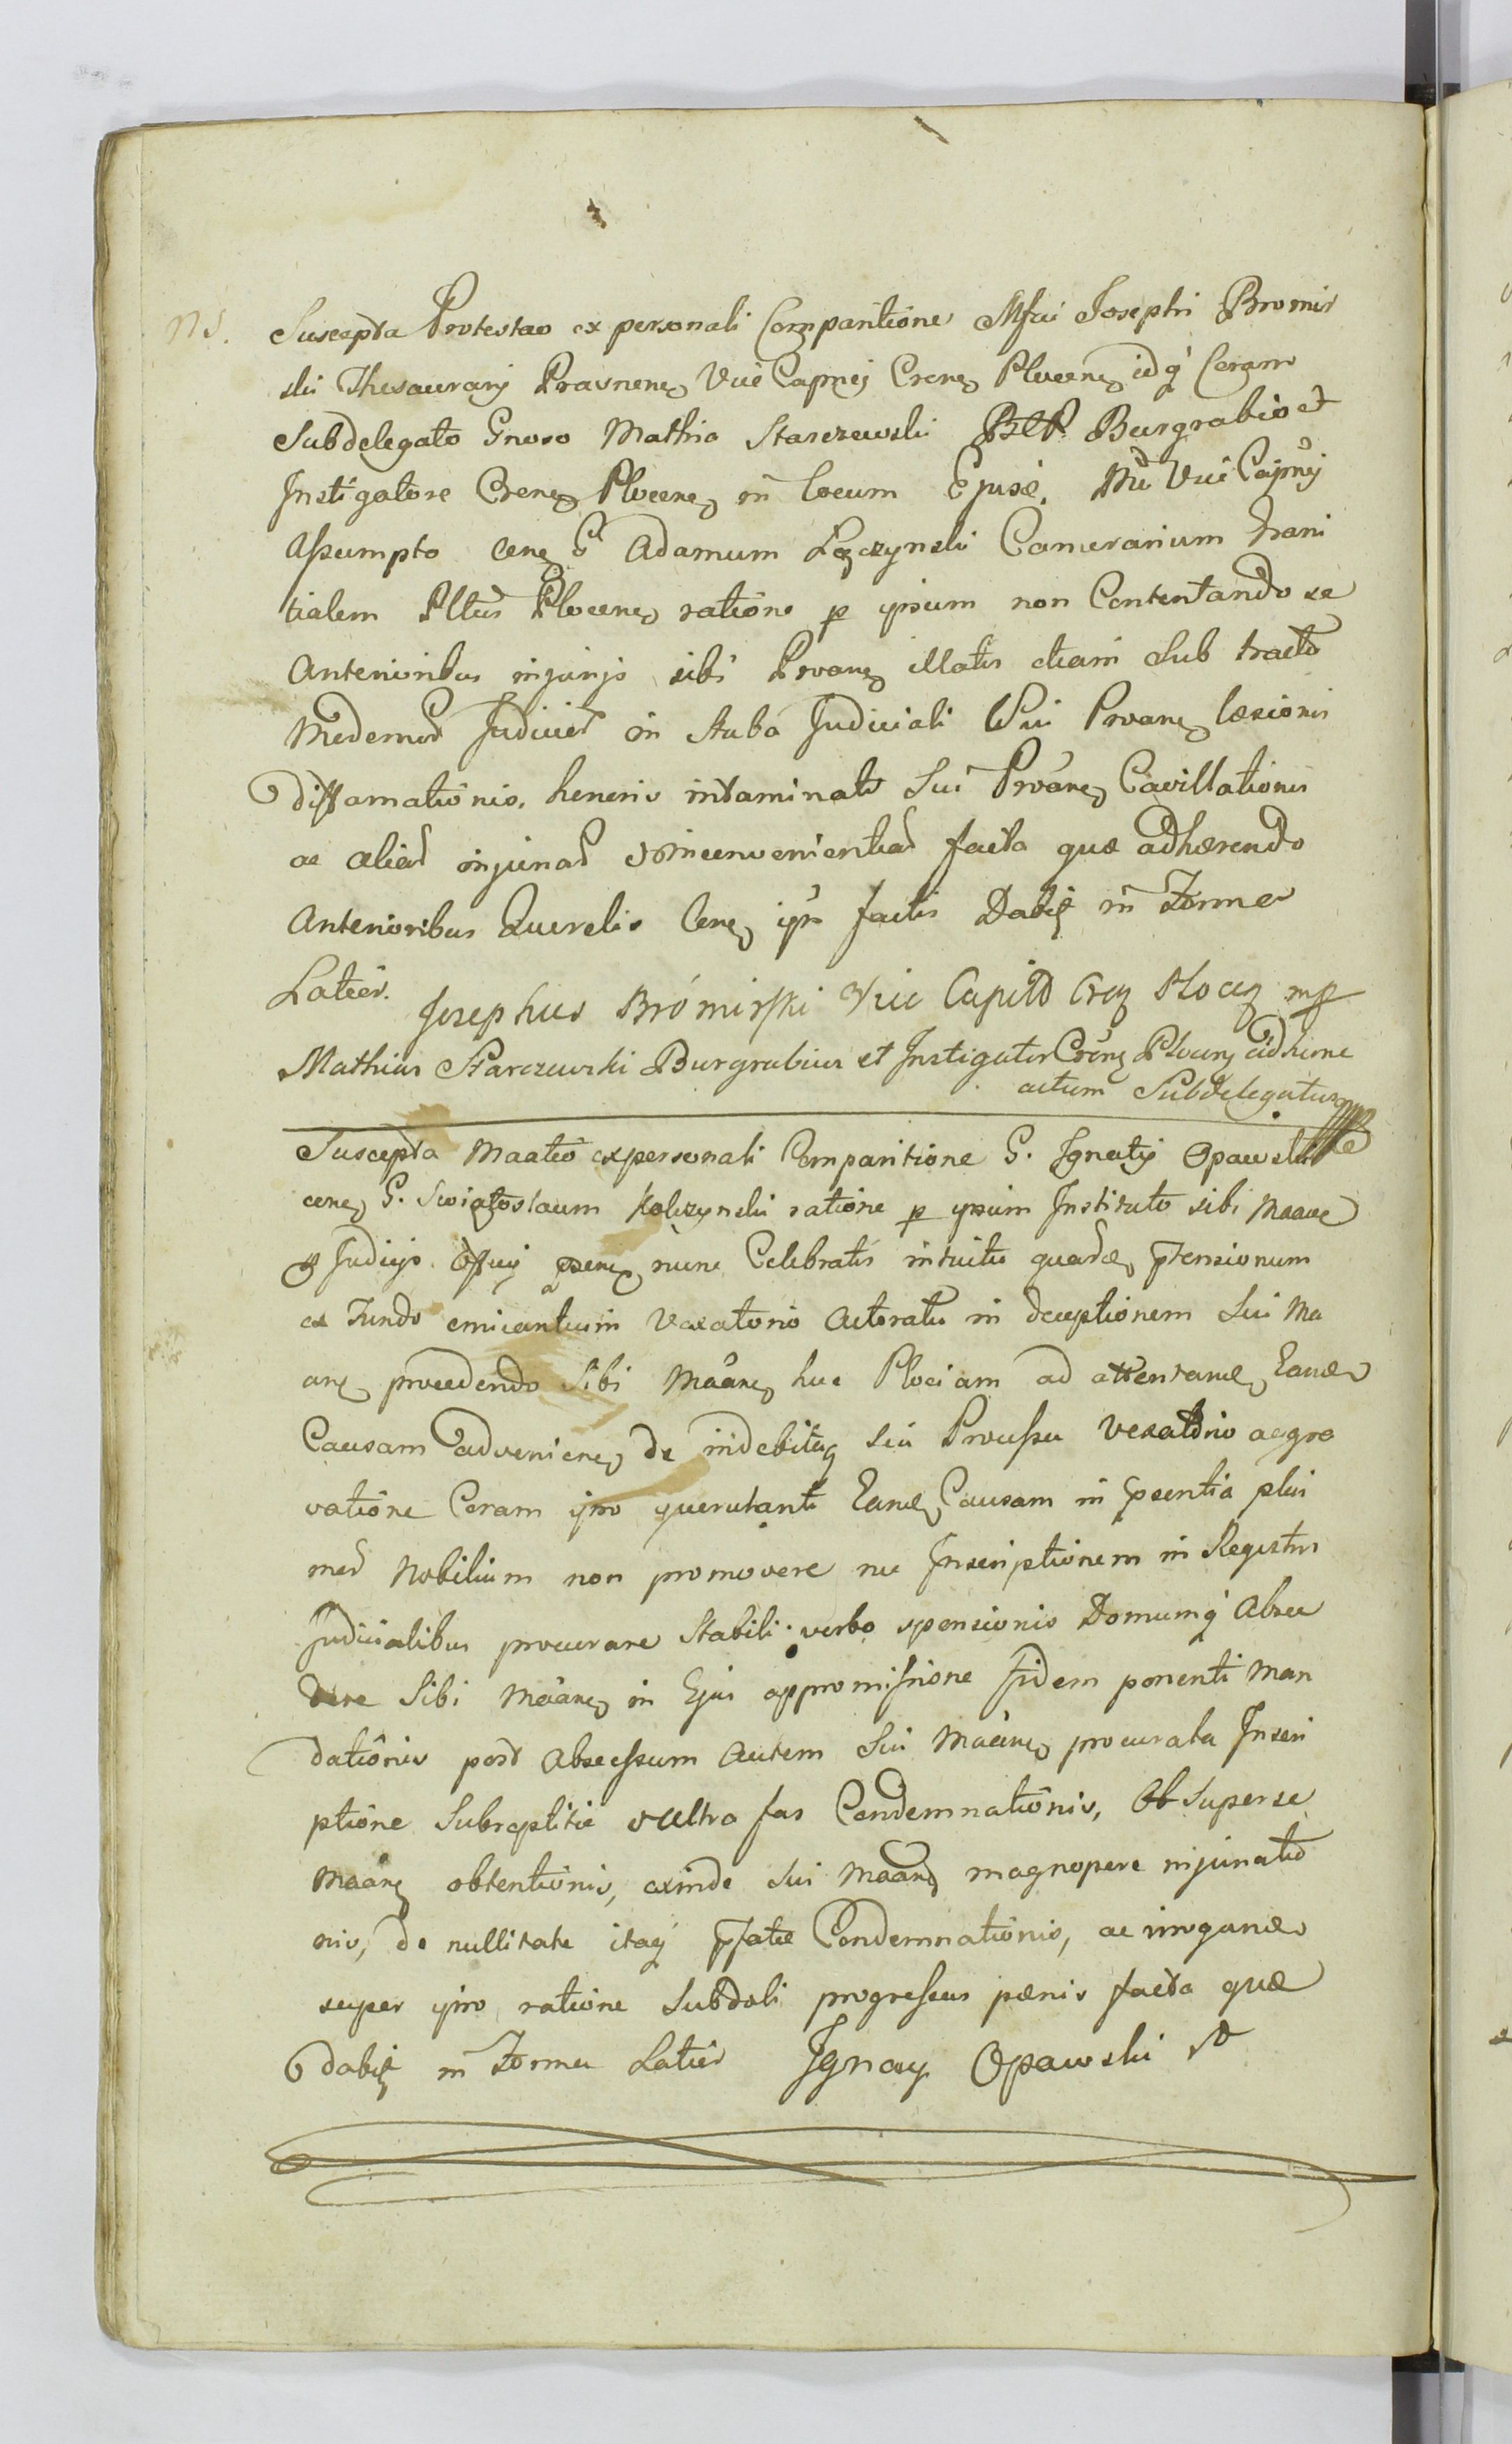 NS. Suscepta Protestao ex personali Comparitione Mfici Josephi Bromir
ski Thesaurarij Krasnens Vice Capnei Crens Plocens idq Coram
Subdelegato Gnoso Mathia Starczewski Burgrabio et
Instigatore Crens Plocens in locum Ejusd. Mci Vice Capnej
Assumpto cens G Adamum Łączynski Camerarium Grani
tialem Pltus Plocens ratione p ipsum non Contentando se
Anterioribus injurijs sibi Prvanti illatis etiam Sub tractu
Modernor Judicior in Stuba Judiciali Sui Prvantis læsionis
diffamationis, honoris intaminati Sui Prvantis Cavillationis
ac aliar injuriar inconvenientiar facta quæ adhærendo
Anterioribus Querelis Cens ipm factis Dabit in Forma
Latiori. Josephus Brómirski Vice Capit Crens Plocens mp
Mathias Starczewski Burgrabius et Instigator Crens Plocens ad hunc
actum Subdelegatus
Suscepta Maatio ex personali Comparitione G. Ignatij Opawski
cens G. Swiątosławm Kolczynski ratione p ipsum Instituto sibi Maanti
Judicijs Officij psens nunc Celebratis intuitu quard ptensionum
ex Fundo emicantium Vexatorio Actoratu in deceptionem Sui Ma
antis procedendo Sibi Maanti huc Plociam ad attentand Eand
Causam advenienti de indebita sui Processu Vexatorio aggra
vatione Coram ipso querutanti Eand Causam in psentia pluri
mor Nobilium non promovere nec Inscriptionem in Registris
Judicialibus procurare Stabili verbo sponsionis Domumq Absce
dere Sibi Maanti in Ejus appromissione fidem ponenti Man
dationis post Abscessum Autem Sui Maantis procurata Inscri
ptione Subreptitie ultra fas Condemnationis, Ob Super se
Maante obtentionis, exinde Sui Maantis magnopere injuriatio
nis, de nullitate itaq pfatæ Condemnationis, ac irrogand
super ipso ratione Subdoli progressus pænis facta quæ
dabit in Forma Latiori Ignacy Opawski